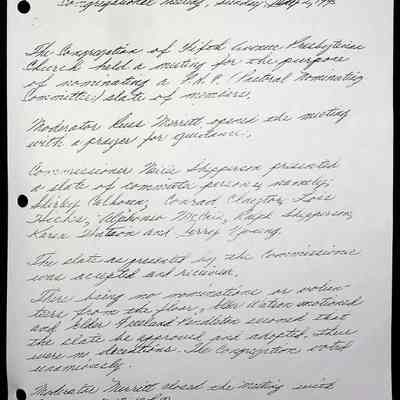 Congregational Meeting, Sunday,
The Congregation of Fifth Avenue Presbyterian
Church held a meeting for the purpose
of nominating a P.N.C. (Pastoral Nominating
Committee) slate of members.
Moderator Russ Merrett opened the meeting
with a prayer for guidance.
Commissioner Shepperson presented
a slate of committee persons, namely;
Shirley Calhoun, Conrad Claytor, Lois
Hicks, Alphonso Ralph Shepperson,
Karen Watson and Jerry Young.
The slate as presented by the Commissioner
was accepted and received.
There being no nominations or volun-
teers from the floor, Elder Watson motioned
and Elder Vreeland Pendleton second that
the slate be approved and adopted. There
were no The Congregation voted
Moderator Merrett closed the meeting with